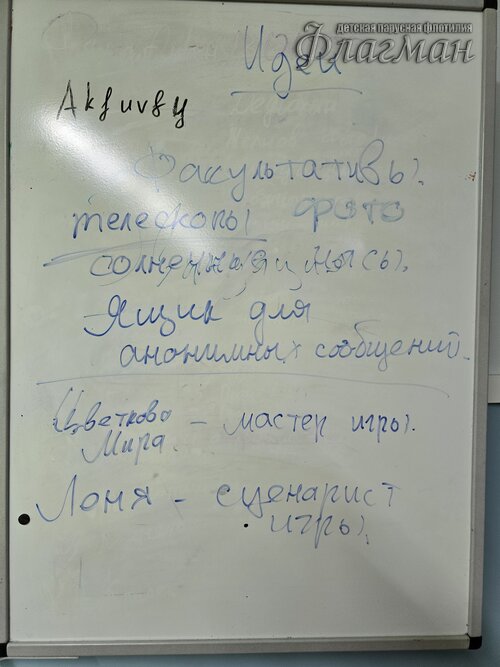 детская парусная флотилия
Флагман
Идеи
Akfuvfy
Факультативы.
телескопы фото
солнечная
Ящик для
анонимных сообщений.
Цветкова – мастер игры.
Мира.
Лоня – сценарист
игры.